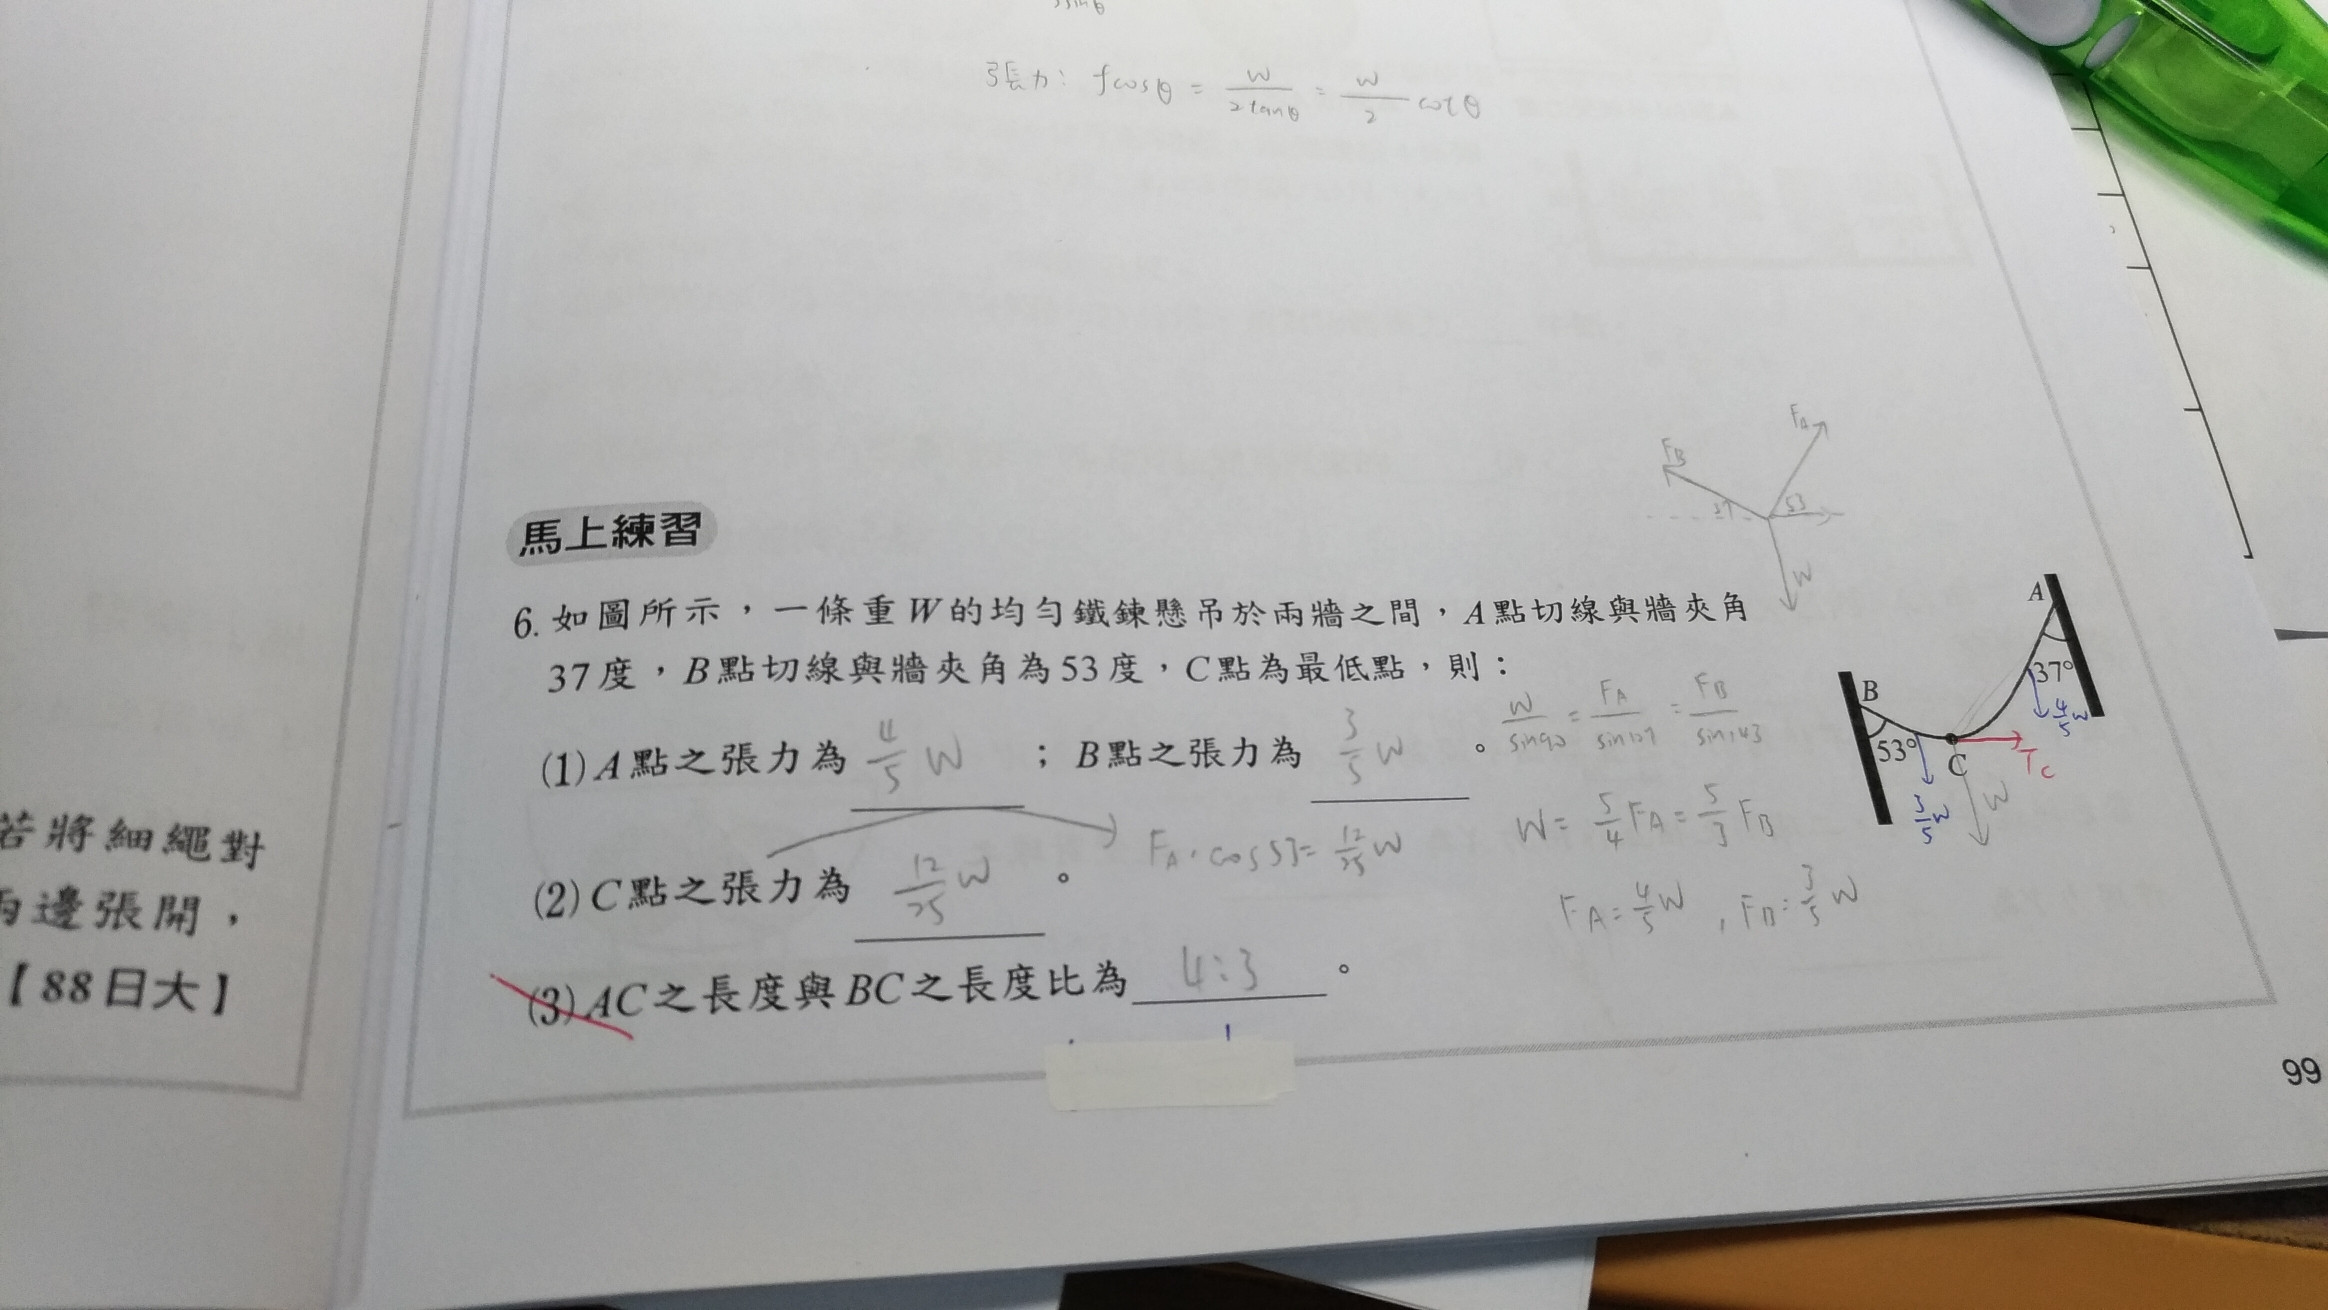 張力: fcosθ = W/2tanθ = W/2 cotθ
馬上練習
6. 如圖所示，一條重W的均勻鐵鍊懸吊於兩牆之間，A點切線與牆夾角
37度，B點切線與牆夾角為53度，C點為最低點，則：
(1) A點之張力為 4/5 W ；B點之張力為 3/5 W 。
(2) C點之張力為 12/25 W 。
FA·cos53=12/25 W
(3) AC之長度與BC之長度比為 4:3 。
W/sin90 = FA/sin127 = FB/sin143
W= 5/4 FA = 5/3 FB
FA=4/5 W , FB=3/5 W
FB
FA
37
53
W
A
37°
4/5 W
B
53°
C
Tc
3/5 W
W
若將細繩對
兩邊張開，
【88日大】
99